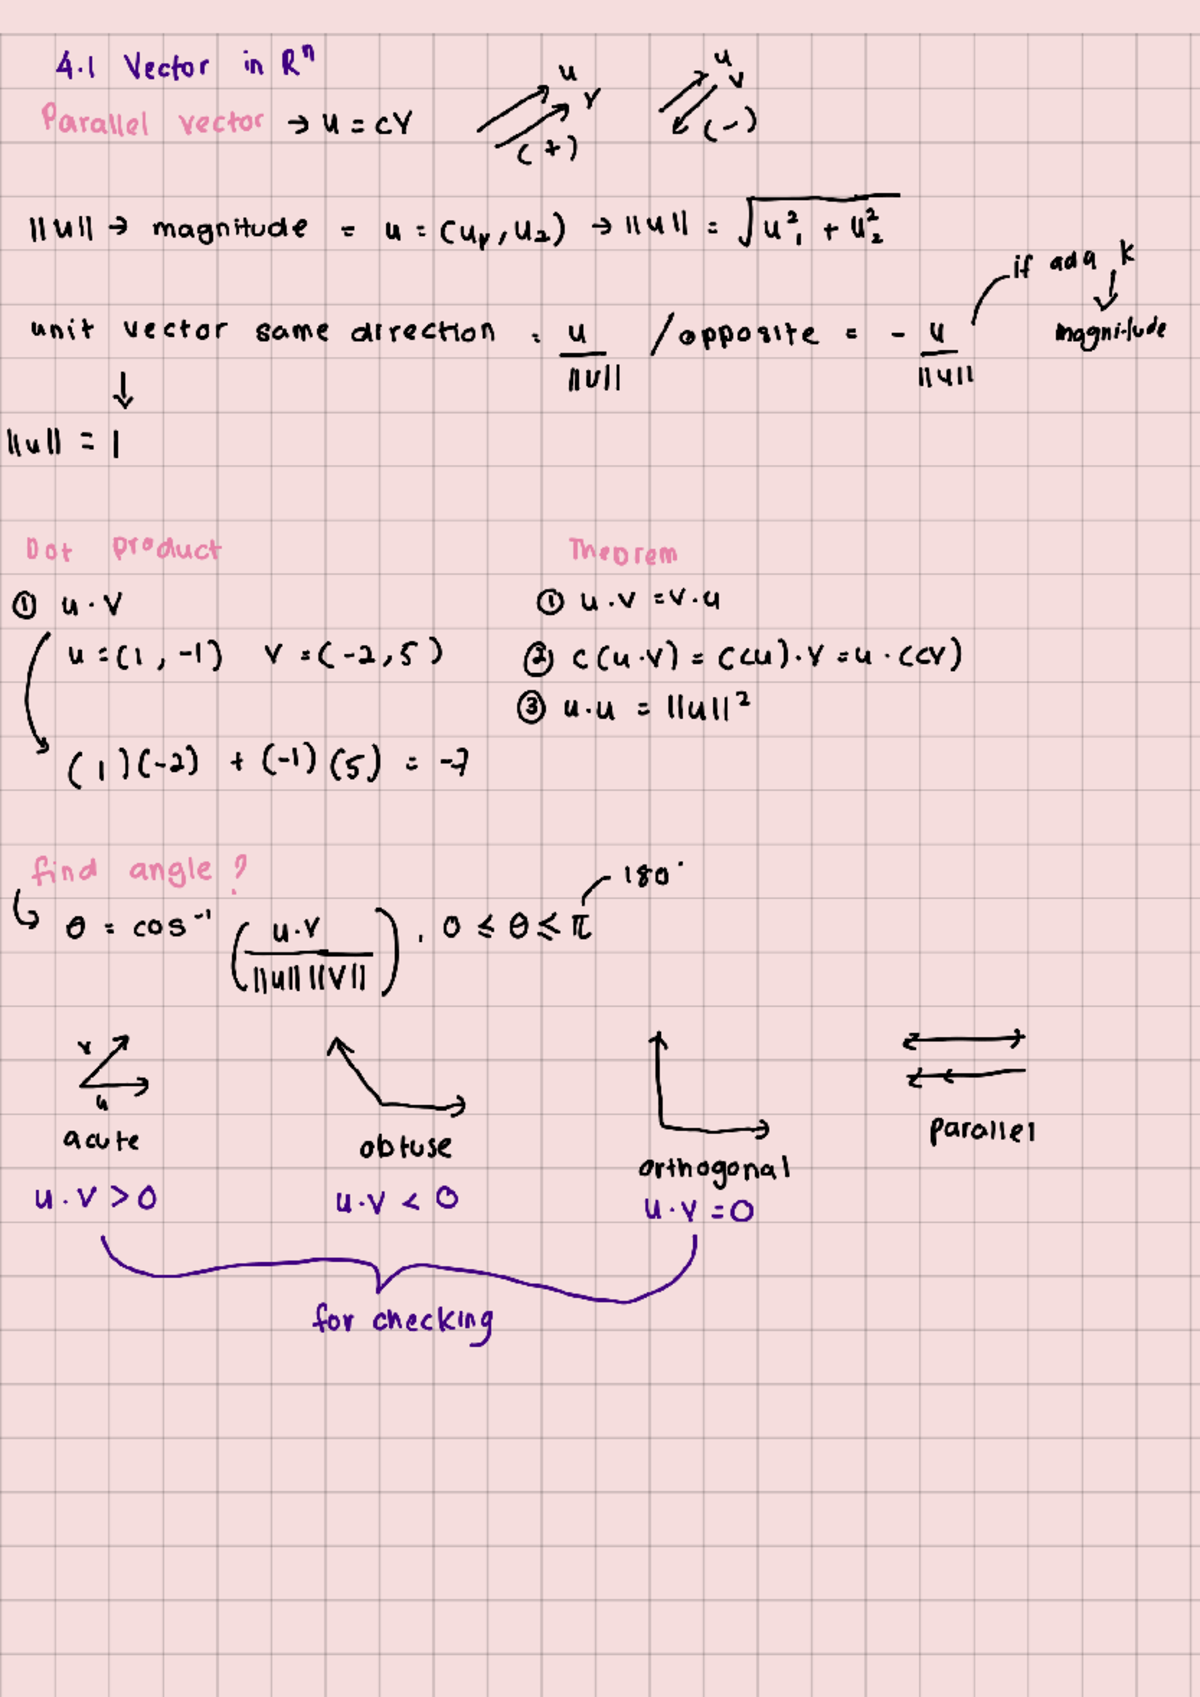 4.1 Vector in Rⁿ
Parallel vector → u = cv
u
v
(+)
u
v
(-)
||u|| → magnitude = u = (u₁, u₂) → ||u|| = √(u₁² + u₂²)
if ada k
↓
magnitude
unit vector same direction = u/||u|| / opposite = - u/||u||
↓
||u|| = 1
Dot product
① u · v
u = (1, -1) v = (-2, 5)
(1)(-2) + (-1)(5) = -7
Theorem
① u·v = v·u
② c(u·v) = (cu)·v = u·(cv)
③ u·u = ||u||²
find angle?
180°
θ = cos⁻¹ (u·v / ||u|| ||v||), 0 ≤ θ ≤ π
v
u
acute
u·v > 0
obtuse
u·v < 0
orthogonal
u·v = 0
parallel
for checking